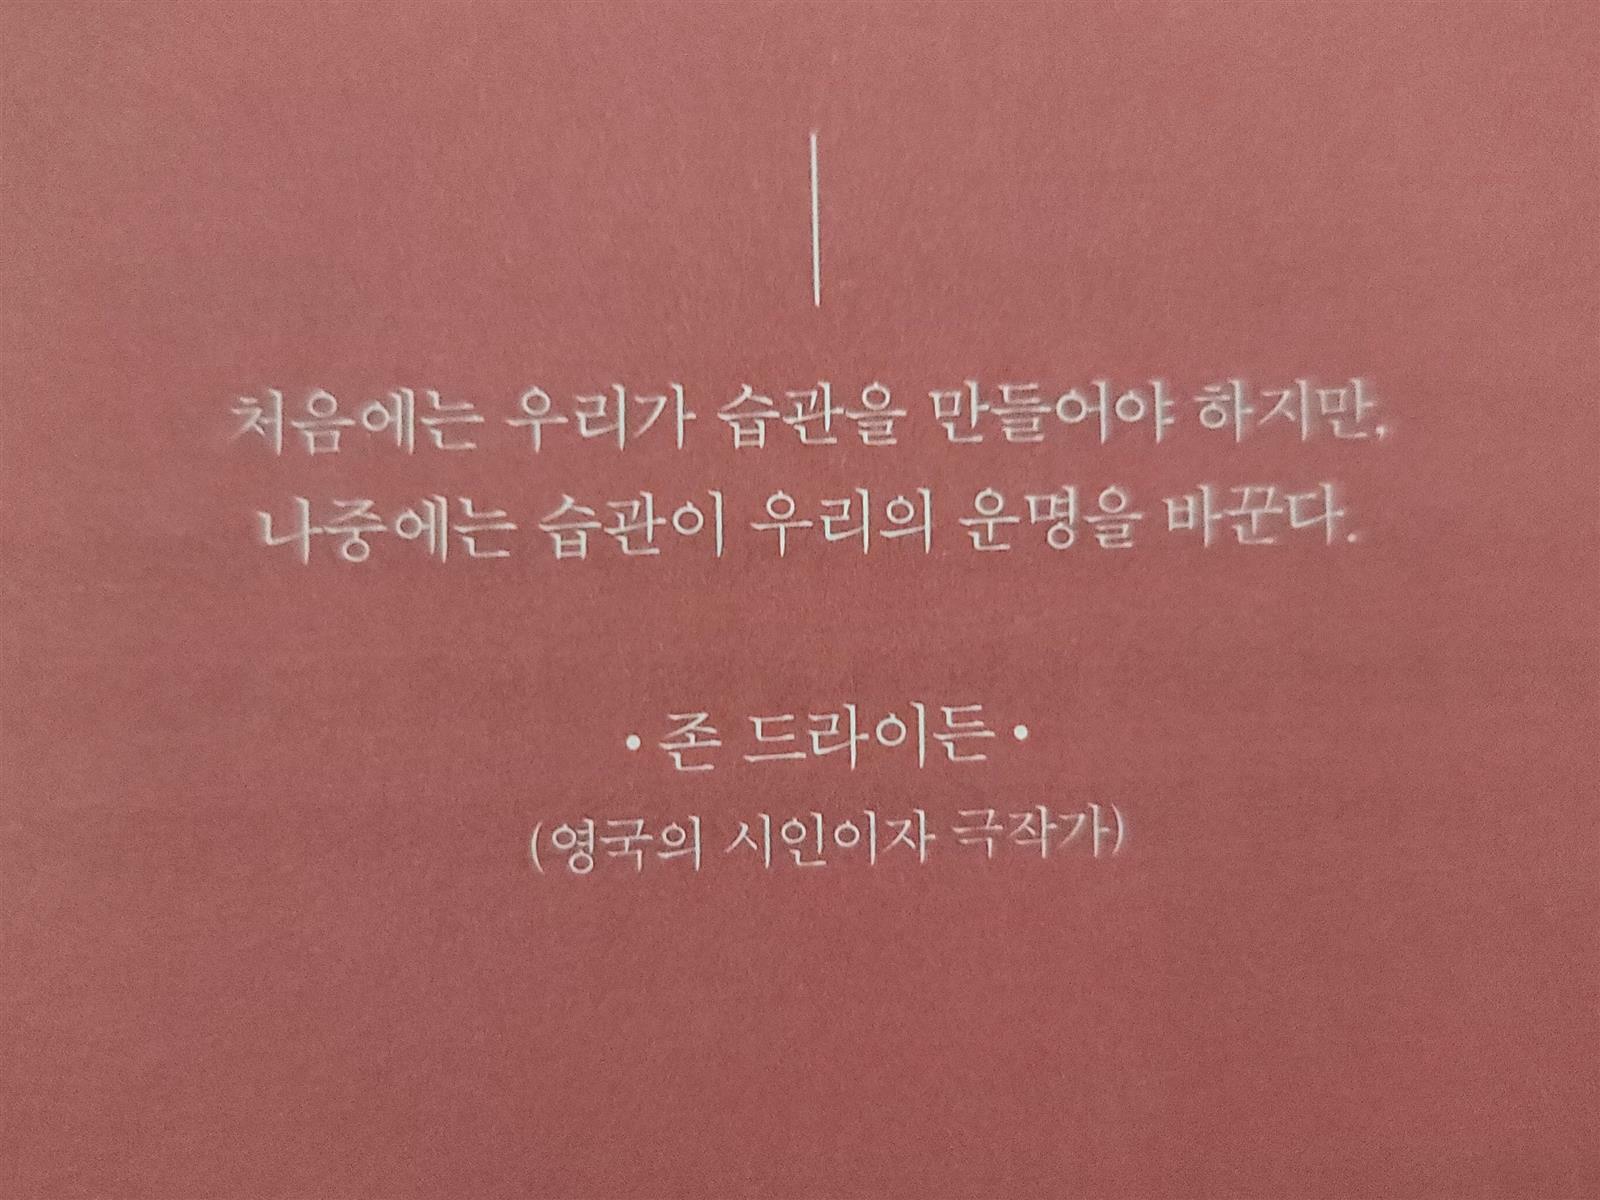 처음에는 우리가 습관을 만들어야 하지만,
나중에는 습관이 우리의 운명을 바꾼다.
• 존 드라이든 •
(영국의 시인이자 극작가)